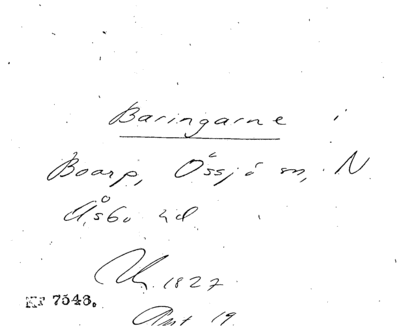 Baringarne i
Boarp, Össjö sn, N
Åsbo hd
Uh. 1827
KF 7543.
Ant 19